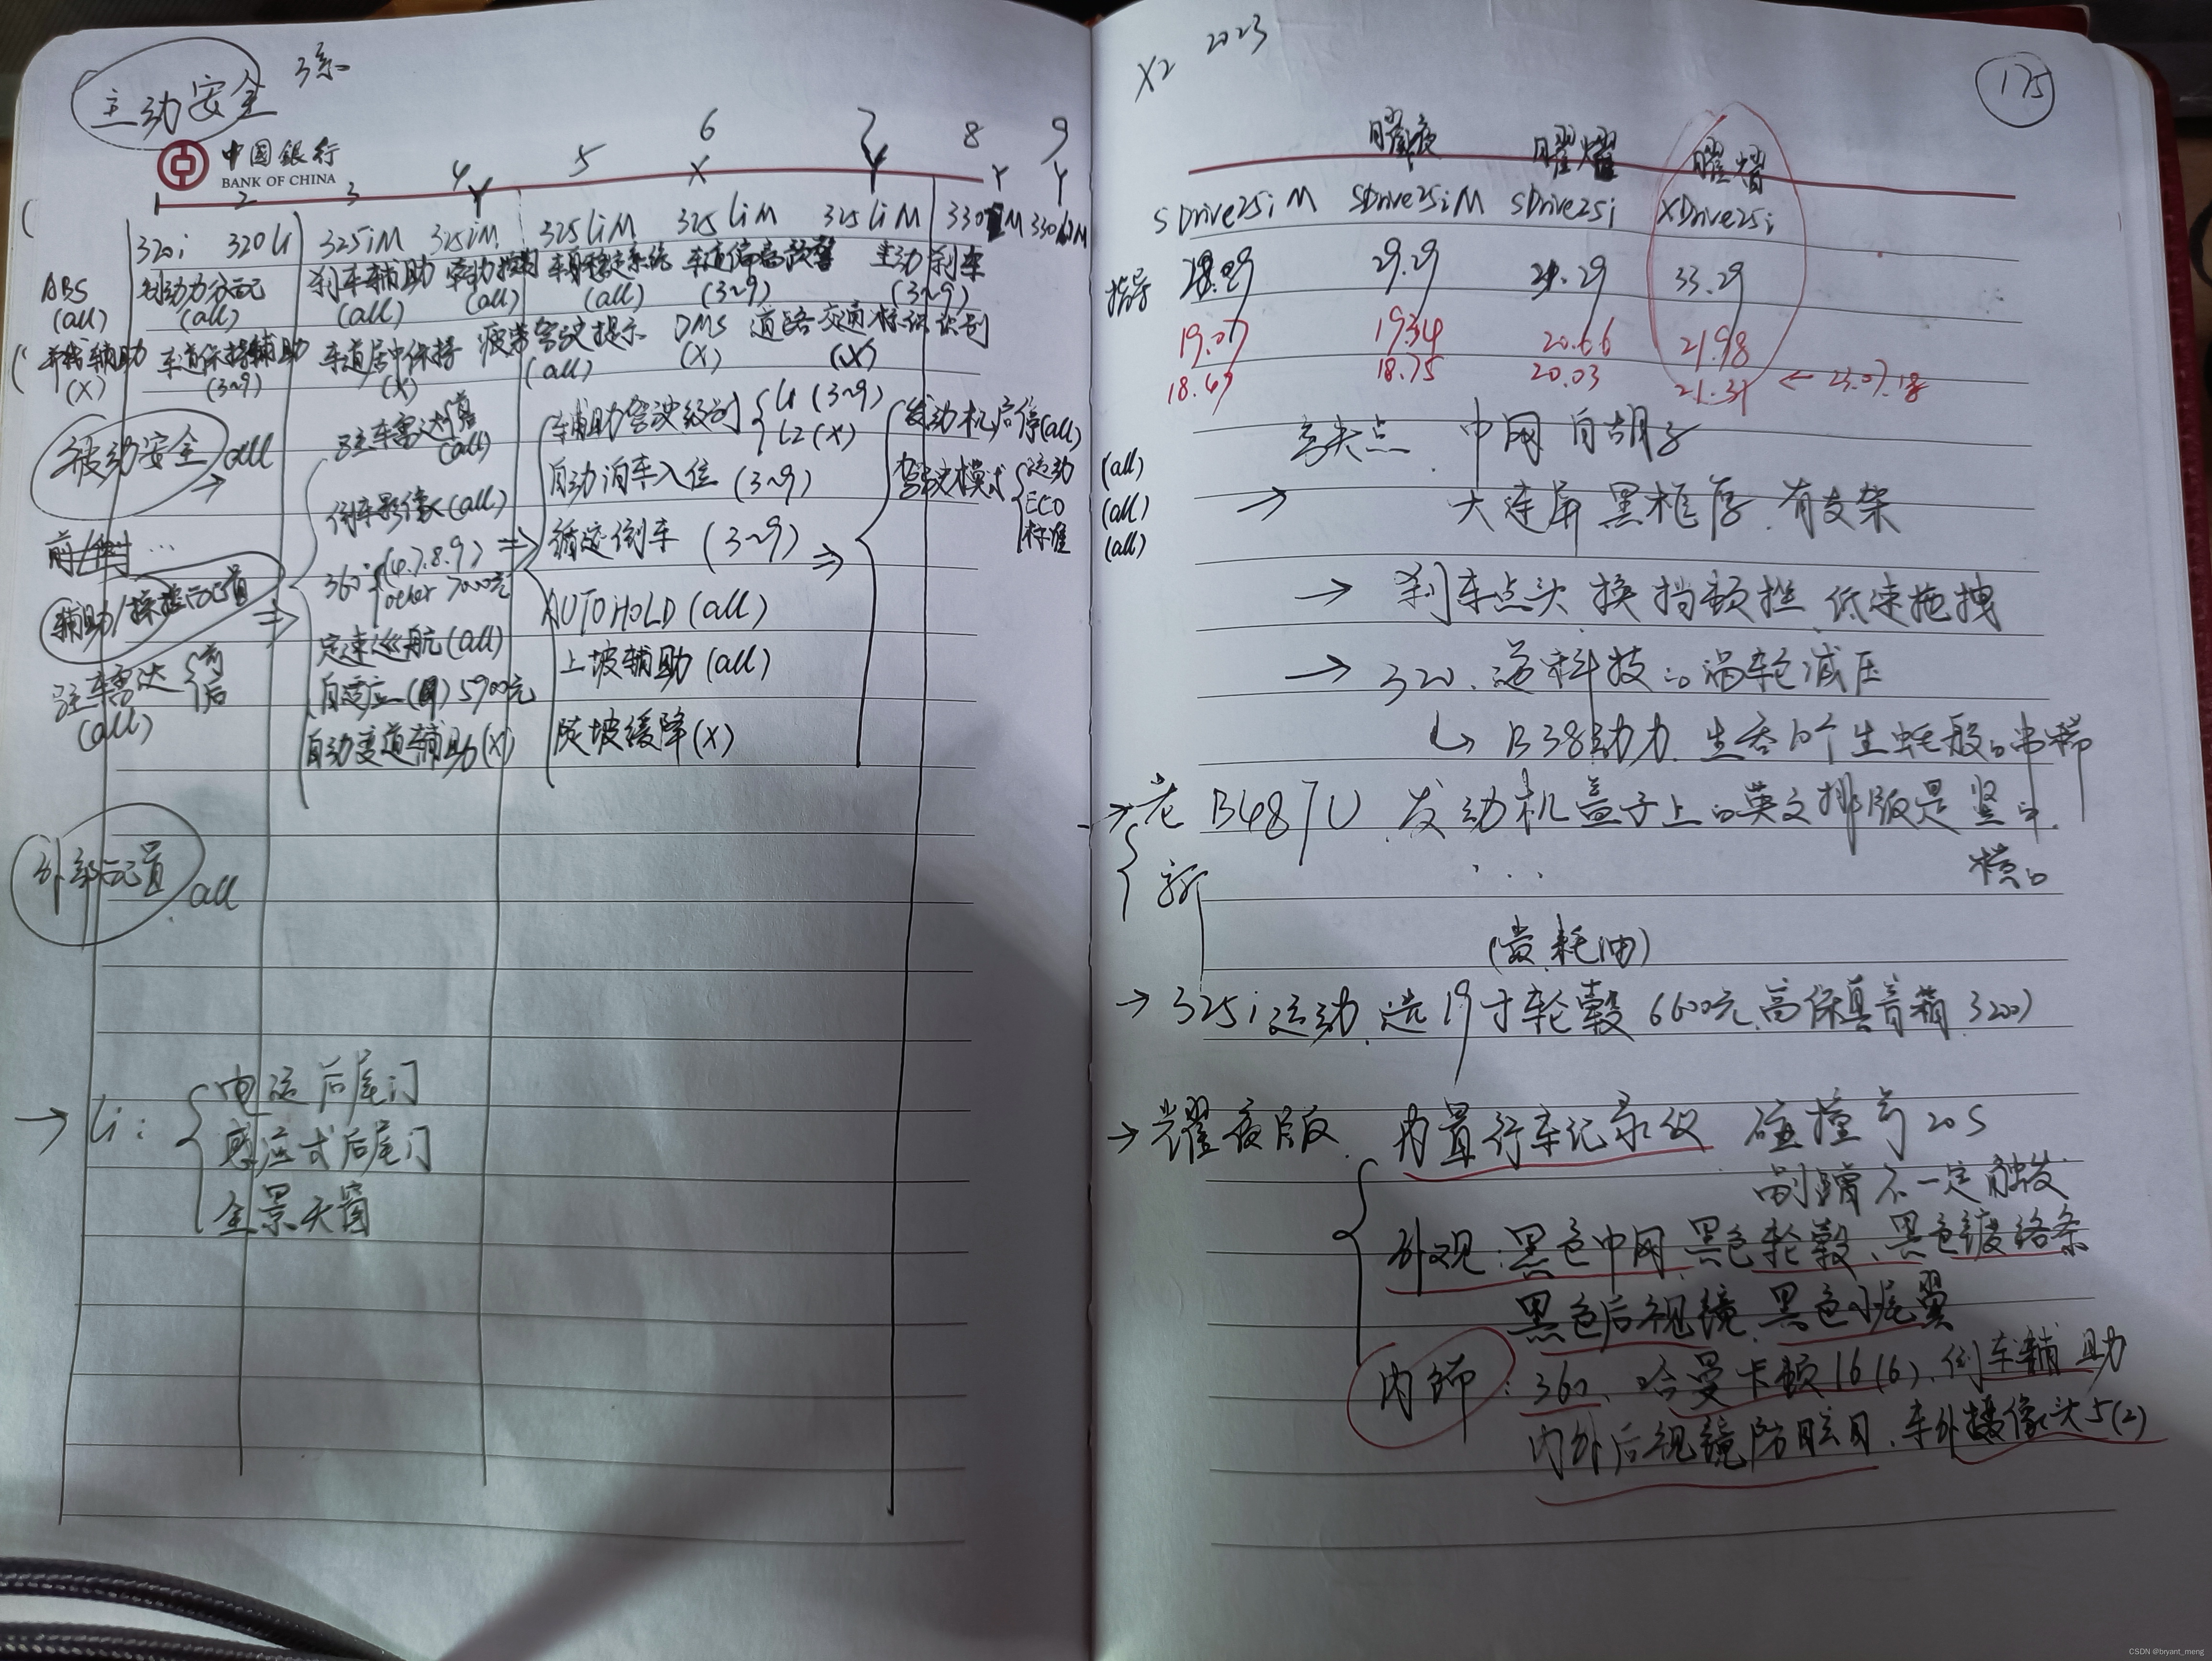 主动安全 3系
中国银行
BANK OF CHINA
1 2 3 4Y 5 6X 7Y 8Y 9Y
320i 320Li 325iM 325iM 325LiM 325LiM 325LiM 330 M 330LiM
ABS 制动力分配 刹车辅助 牵引力控制 车身稳定系统 车道偏离预警 主动刹车
(all) (all) (all) (all) (all) (3~9) (3~9)
并线辅助 车道保持辅助 车道居中保持 疲劳驾驶提示 DMS 道路交通标识识别
(X) (3~9) (X) (all) (X) (X)
被动安全 all
前/侧 …
辅助/操控配置
驻车雷达 前 后
(all)
驻车雷达 前 后
(all)
倒车影像 (all)
360° (4.7.8.9)
other 7000元
定速巡航 (all)
自适应 5900元
自动变道辅助 (X)
辅助驾驶级别 L1 (3~9)
L2 (X)
自动泊车入位 (3~9)
循迹倒车 (3~9)
AUTO HOLD (all)
上坡辅助 (all)
陡坡缓降 (X)
发动机启停 (all)
驾驶模式 运动 (all)
ECO (all)
标准 (all)
外部配置 all
→ Li: 电动后尾门
感应式后尾门
全景天窗
X2 2023
175
曜夜 曜耀 曜耀
SDrive25i M SDrive25i M SDrive25i XDrive25i
指导 28.29 29.29 29.29 33.29
19.07 19.34 20.66 21.98
18.67 18.75 20.03 21.31 ← 23.07.18
中网 白胡子
→ 大连屏 黑框厚 有支架
→ 刹车点头 换挡顿挫 低速拖拽
→ 320 科技 涡轮减压
B38动力
→ 老 B48TU 发动机盖子上的英文排版是竖的
新 … 横的
(贵 耗油)
→ 325i运动 选19寸轮毂 6600元 高保真音箱 3200)
→ 耀夜版 内置行车记录仪 碰撞前20s
剐蹭不一定触发
外观:黑色中网、黑色轮毂、黑色镀络条
黑色后视镜、黑色小尾翼
内饰:360、哈曼卡顿16(6)、倒车辅助
内外后视镜防眩目、车外摄像头5(2)
CSDN @bryant_meng